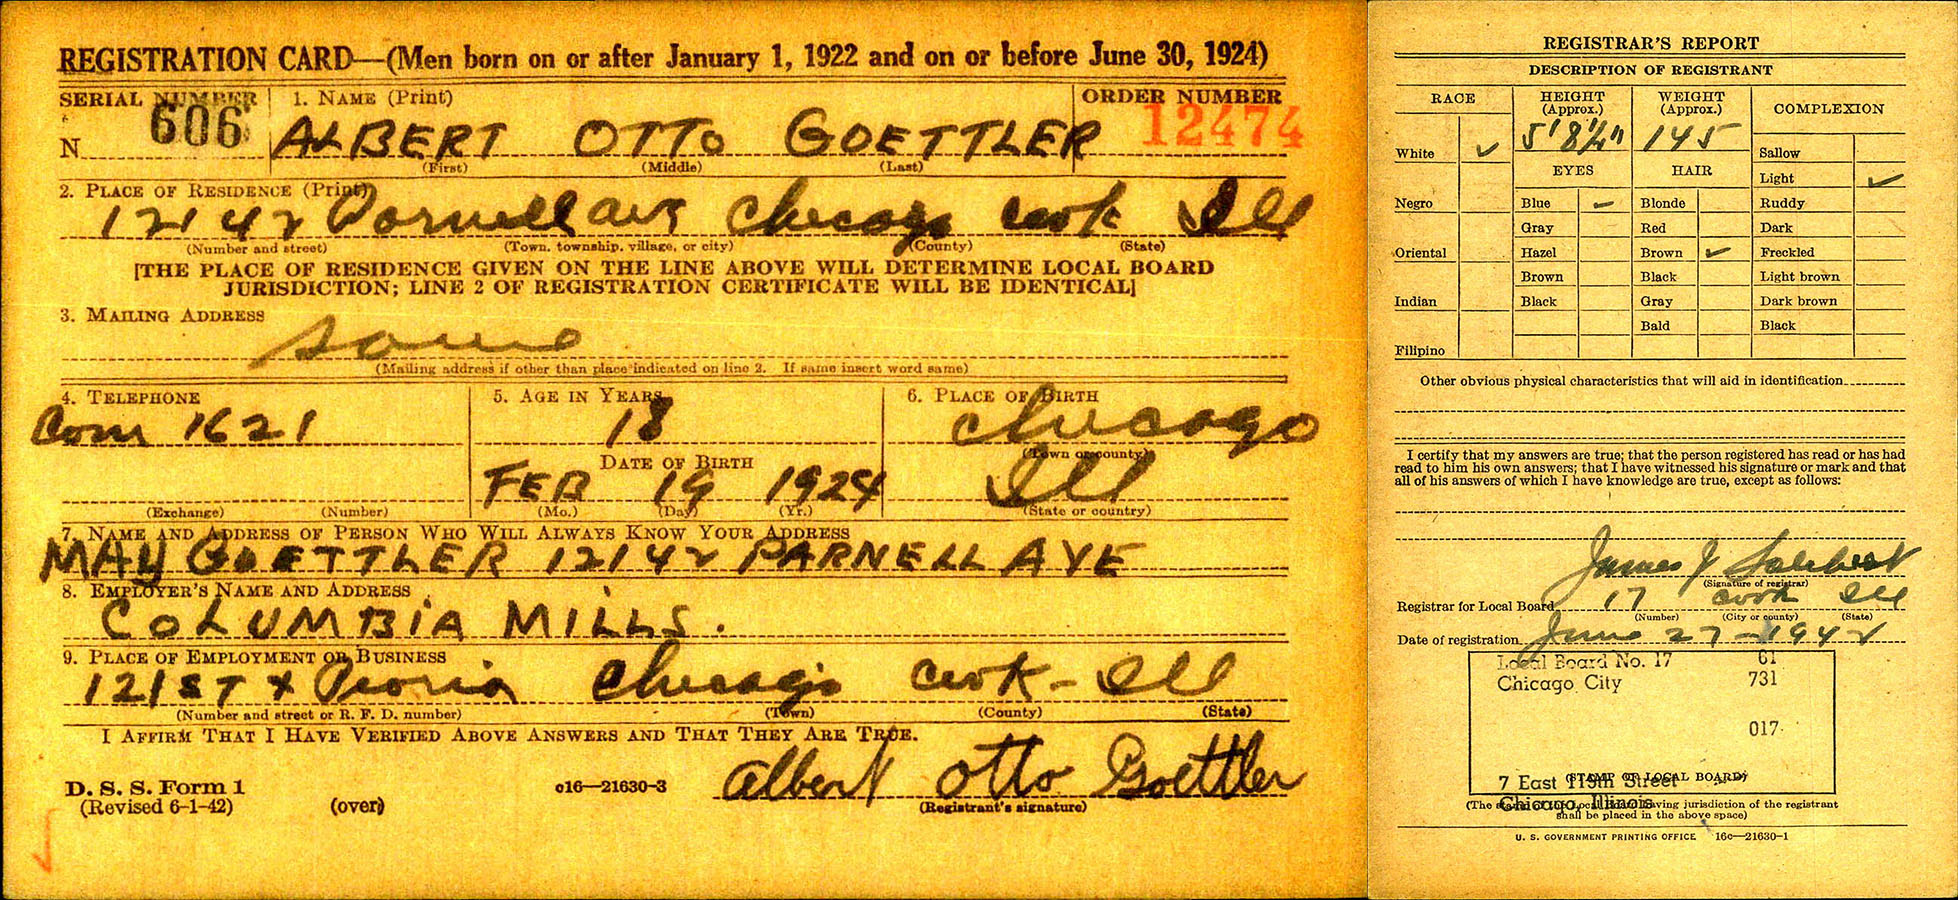 REGISTRATION CARD—(Men born on or after January 1, 1922 and on or before June 30, 1924)
SERIAL NUMBER
1. NAME (Print)
ORDER NUMBER
N 606
ALBERT OTTO GOETTLER
12474
(First) (Middle) (Last)
2. PLACE OF RESIDENCE (Print)
12142 Parnell Ave Chicago Cook Ill
(Number and street) (Town, township, village, or city) (County) (State)
[THE PLACE OF RESIDENCE GIVEN ON THE LINE ABOVE WILL DETERMINE LOCAL BOARD
JURISDICTION; LINE 2 OF REGISTRATION CERTIFICATE WILL BE IDENTICAL]
3. MAILING ADDRESS
Same
(Mailing address if other than place indicated on line 2. If same insert word same)
4. TELEPHONE
5. AGE IN YEARS
6. PLACE OF BIRTH
Com 1621
18
Chicago
(Town or county)
DATE OF BIRTH
FEB 19 1924
Ill
(Exchange) (Number)
(Mo.) (Day) (Yr.)
(State or country)
7. NAME AND ADDRESS OF PERSON WHO WILL ALWAYS KNOW YOUR ADDRESS
MAY GOETTLER 12142 PARNELL AVE
8. EMPLOYER'S NAME AND ADDRESS
COLUMBIA MILLS.
9. PLACE OF EMPLOYMENT OR BUSINESS
121ST & Peoria Chicago Cook - Ill
(Number and street or R. F. D. number) (Town) (County) (State)
I AFFIRM THAT I HAVE VERIFIED ABOVE ANSWERS AND THAT THEY ARE TRUE.
D. S. S. Form 1
(Revised 6-1-42)
(over)
o16—21630-3
Albert Otto Goettler
(Registrant's signature)
REGISTRAR'S REPORT
DESCRIPTION OF REGISTRANT
RACE
HEIGHT
(Approx.)
WEIGHT
(Approx.)
COMPLEXION
5' 8 1/2"
145
White ✓
Sallow
EYES
HAIR
Light ✓
Negro
Blue ✓
Blonde
Ruddy
Gray
Red
Dark
Oriental
Hazel
Brown ✓
Freckled
Brown
Black
Light brown
Indian
Black
Gray
Dark brown
Bald
Black
Filipino
Other obvious physical characteristics that will aid in identification
I certify that my answers are true; that the person registered has read or has had
read to him his own answers; that I have witnessed his signature or mark and that
all of his answers of which I have knowledge are true, except as follows:
James J
(Signature of registrar)
Registrar for Local Board 17 Cook Ill
(Number) (City or county) (State)
Date of registration June 27-1942
Local Board No. 17 61
Chicago City 731
017
7 East 119th Street
(STAMP OF LOCAL BOARD)
Chicago, Illinois
(The stamp of the Local Board having jurisdiction of the registrant
shall be placed in the above space)
U. S. GOVERNMENT PRINTING OFFICE 16c—21630-1